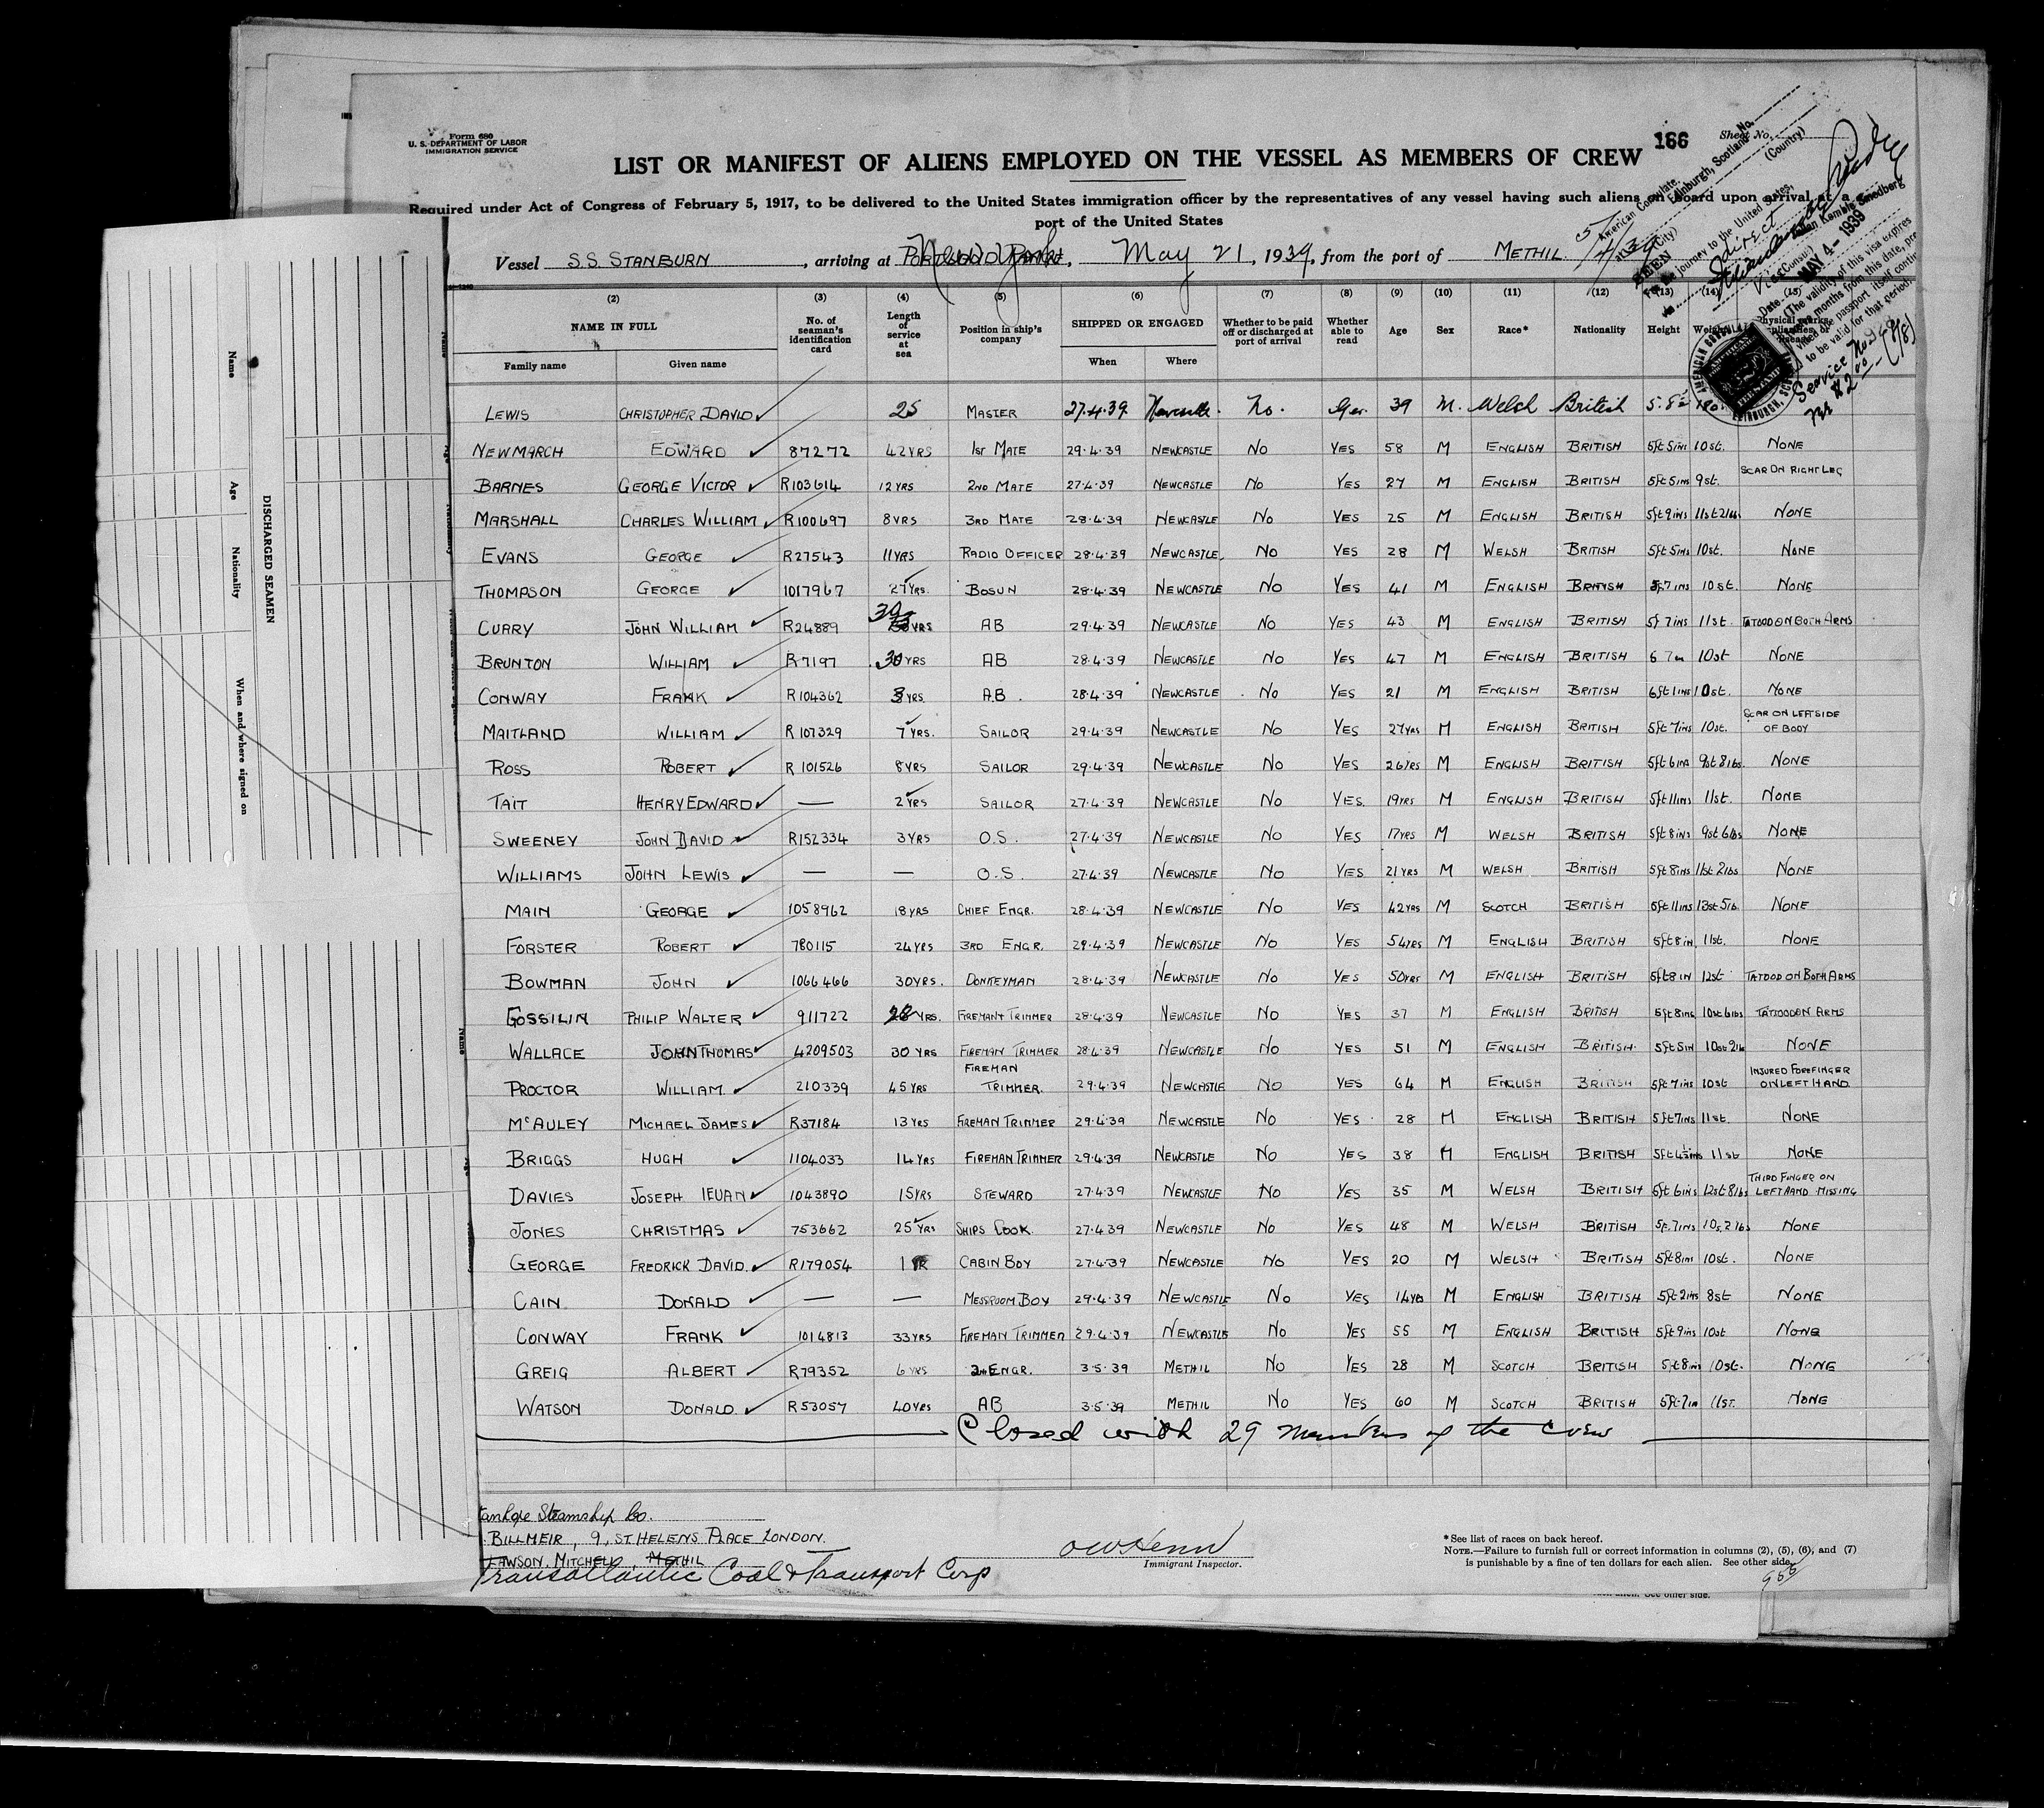 Form 680
U. S. DEPARTMENT OF LABOR
IMMIGRATION SERVICE
166
Sheet No.
LIST OR MANIFEST OF ALIENS EMPLOYED ON THE VESSEL AS MEMBERS OF CREW
Required under Act of Congress of February 5, 1917, to be delivered to the United States immigration officer by the representatives of any vessel having such aliens on board upon arrival at a
port of the United States
Vessel S.S. STANBURN, arriving at New York, May 21, 1939, from the port of METHIL
No.
American Consulate,
Edinburgh, Scotland
(Country)
(City)
SEEN
For the journey to the United States,
direct
Vice Consul
Date MAY 4 - 1939
(The validity of this visa expires
months from this date,
passport itself
to be valid for that period.
Service No.
(2) (3) (4) (5) (6) (7) (8) (9) (10) (11) (12) (13) (14) (15)
NAME IN FULL No. of seaman's identification card Length of service at sea Position in ship's company SHIPPED OR ENGAGED Whether to be paid off or discharged at port of arrival Whether able to read Age Sex Race* Nationality Height Weight
Family name Given name When Where
LEWIS CHRISTOPHER DAVID ✓ 25 MASTER 27.4.39 Newcastle No. Yes. 39 M. Welsh British 5.8½
NEWMARCH EDWARD ✓ 87272 42 YRS 1ST MATE 29.4.39 NEWCASTLE NO YES 58 M ENGLISH BRITISH 5ft 5ins 10st. NONE
BARNES GEORGE VICTOR ✓ R103614 12 YRS 2ND MATE 27.4.39 NEWCASTLE NO YES 27 M ENGLISH BRITISH 5ft 5ins 9st. SCAR ON RIGHT LEG
MARSHALL CHARLES WILLIAM ✓ R100697 8 YRS 3RD MATE 28.4.39 NEWCASTLE NO YES 25 M ENGLISH BRITISH 5ft 9ins 11st 2lbs NONE
EVANS GEORGE ✓ R27543 11 YRS RADIO OFFICER 28.4.39 NEWCASTLE NO YES 28 M WELSH BRITISH 5ft 5ins 10st. NONE
THOMPSON GEORGE ✓ 1017967 27 YRS. BOSUN 28.4.39 NEWCASTLE NO YES 41 M ENGLISH BRITISH 5f 7ins 10st. NONE
CURRY JOHN WILLIAM ✓ R24889 30 YRS AB 29.4.39 NEWCASTLE NO YES 43 M ENGLISH BRITISH 5f 7ins 11st. TATOOD ON BOTH ARMS
BRUNTON WILLIAM ✓ R7197 30 YRS AB 28.4.39 NEWCASTLE NO YES 47 M ENGLISH BRITISH 6 7in 10st NONE
CONWAY FRANK ✓ R104362 3 YRS. A.B. 28.4.39 NEWCASTLE NO YES 21 M ENGLISH BRITISH 6ft 1ins 10st. NONE
MAITLAND WILLIAM ✓ R107329 7 YRS. SAILOR 29.4.39 NEWCASTLE NO YES 27YRS M ENGLISH BRITISH 5ft 7ins 10st. SCAR ON LEFT SIDE OF BODY
ROSS ROBERT ✓ R101526 8 YRS SAILOR 29.4.39 NEWCASTLE NO YES 26YRS M ENGLISH BRITISH 5ft 6ins 9st 8lbs. NONE
TAIT HENRY EDWARD ✓ — 2 YRS SAILOR 27.4.39 NEWCASTLE NO YES. 19YRS M ENGLISH BRITISH 5ft 11ins 11st. NONE
SWEENEY JOHN DAVID ✓ R152334 3 YRS O.S. 27.4.39 NEWCASTLE NO YES 17YRS M WELSH BRITISH 5ft 8ins 9st 6lbs NONE
WILLIAMS JOHN LEWIS ✓ — — O.S. 27.4.39 NEWCASTLE NO YES 21YRS M WELSH BRITISH 5ft 8ins 11st 2lbs NONE
MAIN GEORGE ✓ 1058962 18 YRS CHIEF ENGR. 28.4.39 NEWCASTLE NO YES 42YRS M SCOTCH BRITISH 5ft 11ins 13st 5lb. NONE
FORSTER ROBERT ✓ 780115 24 YRS 3RD ENGR. 29.4.39 NEWCASTLE NO YES 54YRS M ENGLISH BRITISH 5ft 8in. 11st. NONE
BOWMAN JOHN ✓ 1066466 30 YRS. DONKEYMAN 28.4.39 NEWCASTLE NO YES 50YRS M ENGLISH BRITISH 5ft 8in 12st TATOOD ON BOTH ARMS
GOSSILIN PHILIP WALTER ✓ 911722 YRS. FIREMAN TRIMMER 28.4.39 NEWCASTLE NO YES 37 M ENGLISH BRITISH 5ft 8ins 10st 6lbs TATOOD ON ARMS
WALLACE JOHN THOMAS ✓ 4209503 30 YRS FIREMAN TRIMMER 28.4.39 NEWCASTLE NO YES 51 M ENGLISH BRITISH. 5ft 5in 10st 2lb NONE
PROCTOR WILLIAM. ✓ 210339 45 YRS FIREMAN TRIMMER. 29.4.39 NEWCASTLE NO YES 64 M ENGLISH BRITISH 5ft 7ins 10st INJURED FOREFINGER ON LEFT HAND
McAULEY MICHAEL JAMES ✓ R37184 13 YRS FIREMAN TRIMMER 29.4.39 NEWCASTLE NO YES 28 M ENGLISH BRITISH 5ft 7ins 11st. NONE
BRIGGS HUGH ✓ 1104033 14 YRS FIREMAN TRIMMER 29.4.39 NEWCASTLE NO YES 38 M ENGLISH BRITISH 5ft 4½ins 11st NONE
DAVIES JOSEPH IEUAN ✓ 1043890 15 YRS STEWARD 27.4.39 NEWCASTLE NO YES 35 M WELSH BRITISH 5ft 6ins 12st 8lbs THIRD FINGER ON LEFT HAND MISSING
JONES CHRISTMAS ✓ 753662 25 YRS SHIPS COOK. 27.4.39 NEWCASTLE NO YES 48 M WELSH BRITISH 5f. 7ins 10s. 2lbs NONE
GEORGE FREDRICK DAVID. ✓ R179054 1 YR CABIN BOY 27.4.39 NEWCASTLE NO YES 20 M WELSH BRITISH 5ft 8ins 10st. NONE
CAIN DONALD ✓ — — MESSROOM BOY 29.4.39 NEWCASTLE NO YES 14YRS M ENGLISH BRITISH 5ft 2ins 8st NONE
CONWAY FRANK ✓ 1014813 33 YRS FIREMAN TRIMMER 29.4.39 NEWCASTLE NO YES 55 M ENGLISH BRITISH 5ft 9ins 10st NONE
GREIG ALBERT ✓ R79352 6 YRS 2nd ENGR. 3.5.39 METHIL NO YES 28 M SCOTCH BRITISH 5ft 8ins 10st. NONE
WATSON DONALD. ✓ R53057 40 YRS AB 3.5.39 METHIL NO YES 60 M SCOTCH BRITISH 5ft 7in 11st. NONE
Closed with 29 members of the crew
tanhope Steamship Co.
BILLMEIR, 9, ST. HELENS PLACE LONDON.
LAWSON, MITCHELL, METHIL
Transatlantic Coal & Transport Corp
Immigrant Inspector.
*See list of races on back hereof.
NOTE.—Failure to furnish full or correct information in columns (2), (5), (6), and (7)
is punishable by a fine of ten dollars for each alien. See other side.
DISCHARGED SEAMEN
Name
Age
Nationality
When and where signed on